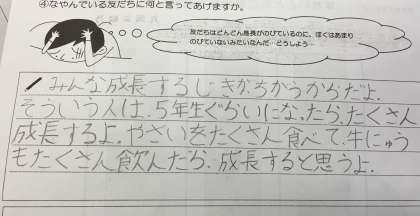 ④なやんでいる友だちに何と言ってあげますか。
友だちはどんどん身長がのびているのに、ぼくはあまり
のびていないみたいなんだ…どうしよう…
みんな成長するじきがちがうからだよ。
そういう人は、5年生ぐらいになったら、たくさん
成長するよ。やさいをたくさん食べて、牛にゅう
もたくさん飲んだら、成長すると思うよ。